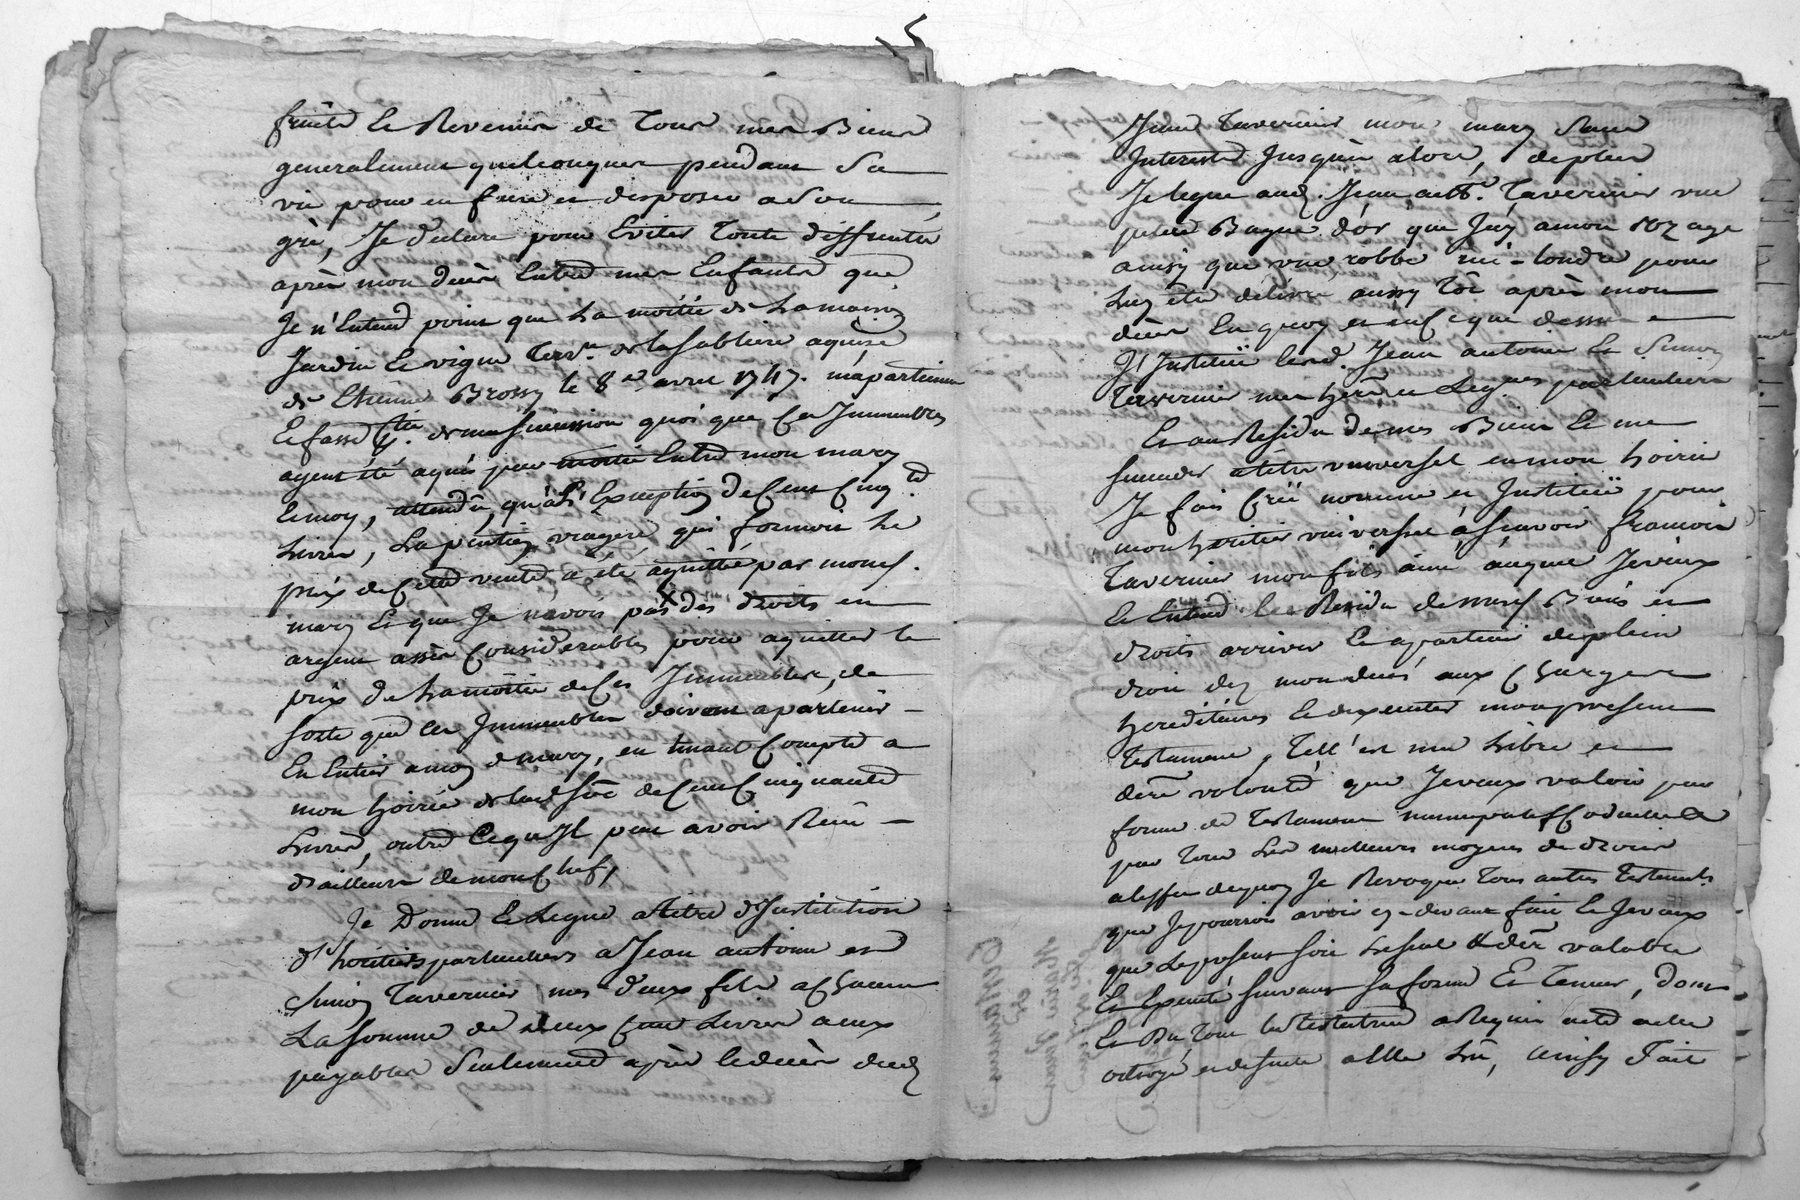 fruits et Revenus de Tous mes Biens
generalement quelconques pendant Sa
vie pour en faire et disposer a Son
gré, Je declare pour Eviter Toute difficulté
après mon decès Entre mes Enfants que
Je n'Entend point que La moitié de La maison
Jardin et vigne de la Sabliere aquise
de Etienne Brossy le 8e avril 1747. m'apartienne
Et fasse de ma Succession quoi que Ces Immeubles
ayent été aquis par moitié Entre mon mary
Et moy, attendu qu'à l'Exception de Cent Cinqte
Livres, La pention viagere qui formoit Le
prix de Cette vente a été aquittée par mond.
mary Et que Je n'avois pas des droits en
argent assès Considerables pour aquitter le
prix de La moitié de Ces Immeubles, de
Sorte que Ces Immeubles doivent apartenir
En Entier a mon d mary, en tenant Compte a
mon hoirie de lad. Sôe de Cent Cinquante
Livres, outre Ce qu'Il peut avoir Reçu
d'ailleurs de mon Chef,
Je Donne et Legue a titre d'Institution
d'heritiers particuliers a Jean antoine et
Simon Tavernier mes deux fils a Chacun
La Somme de deux Cent Livres a eux
payables Seulement après le decès dud.
Jean Tavernier mon mary Sans
Interests Jusqu'à alors, de plus
Je legue aud. Jean antt. Tavernier une
petite Bague d'or que J'ay a mon usage
ainsy que une robbe pour
Luy être delivré aussy Tôt après mon
decès En quoy et au Ce que dessus
J'Instituë lesd. Jean antoine Et Simon
Tavernier mes herers et Legres particuliers
Et au Residu de mes Biens Et me
Succeder a titre universel en mon hoirie
Je fais Créé nomme et Instituë pour
mon heritier universel à Scavoir francois
Tavernier mon fils ainé auquel Je veux
Et Entend Le Residu de mesd. Biens et
droits arriver Et apartenir de plein
droit dez mon decès aux Charges
hereditaires Et d'executer mon present
Testament, Tell'est ma Libre et
dere volonté que Je veux valoir par
forme de Testament nuncupatif Codicille &
par Tous Les meilleurs moyens de droit
a l'effet de quoy Je Revoque Tous autres Testaments
que Je pourrois avoir cy-devant fait Et Je veux
que Le present Soit Le Seul & der valable
Et Executé Suivant Sa forme Et Teneur, dont
Et Du Tout La Testatrice a Requis acte a elle
octroyé et de Suite a Elle Lû, ainsy Fait